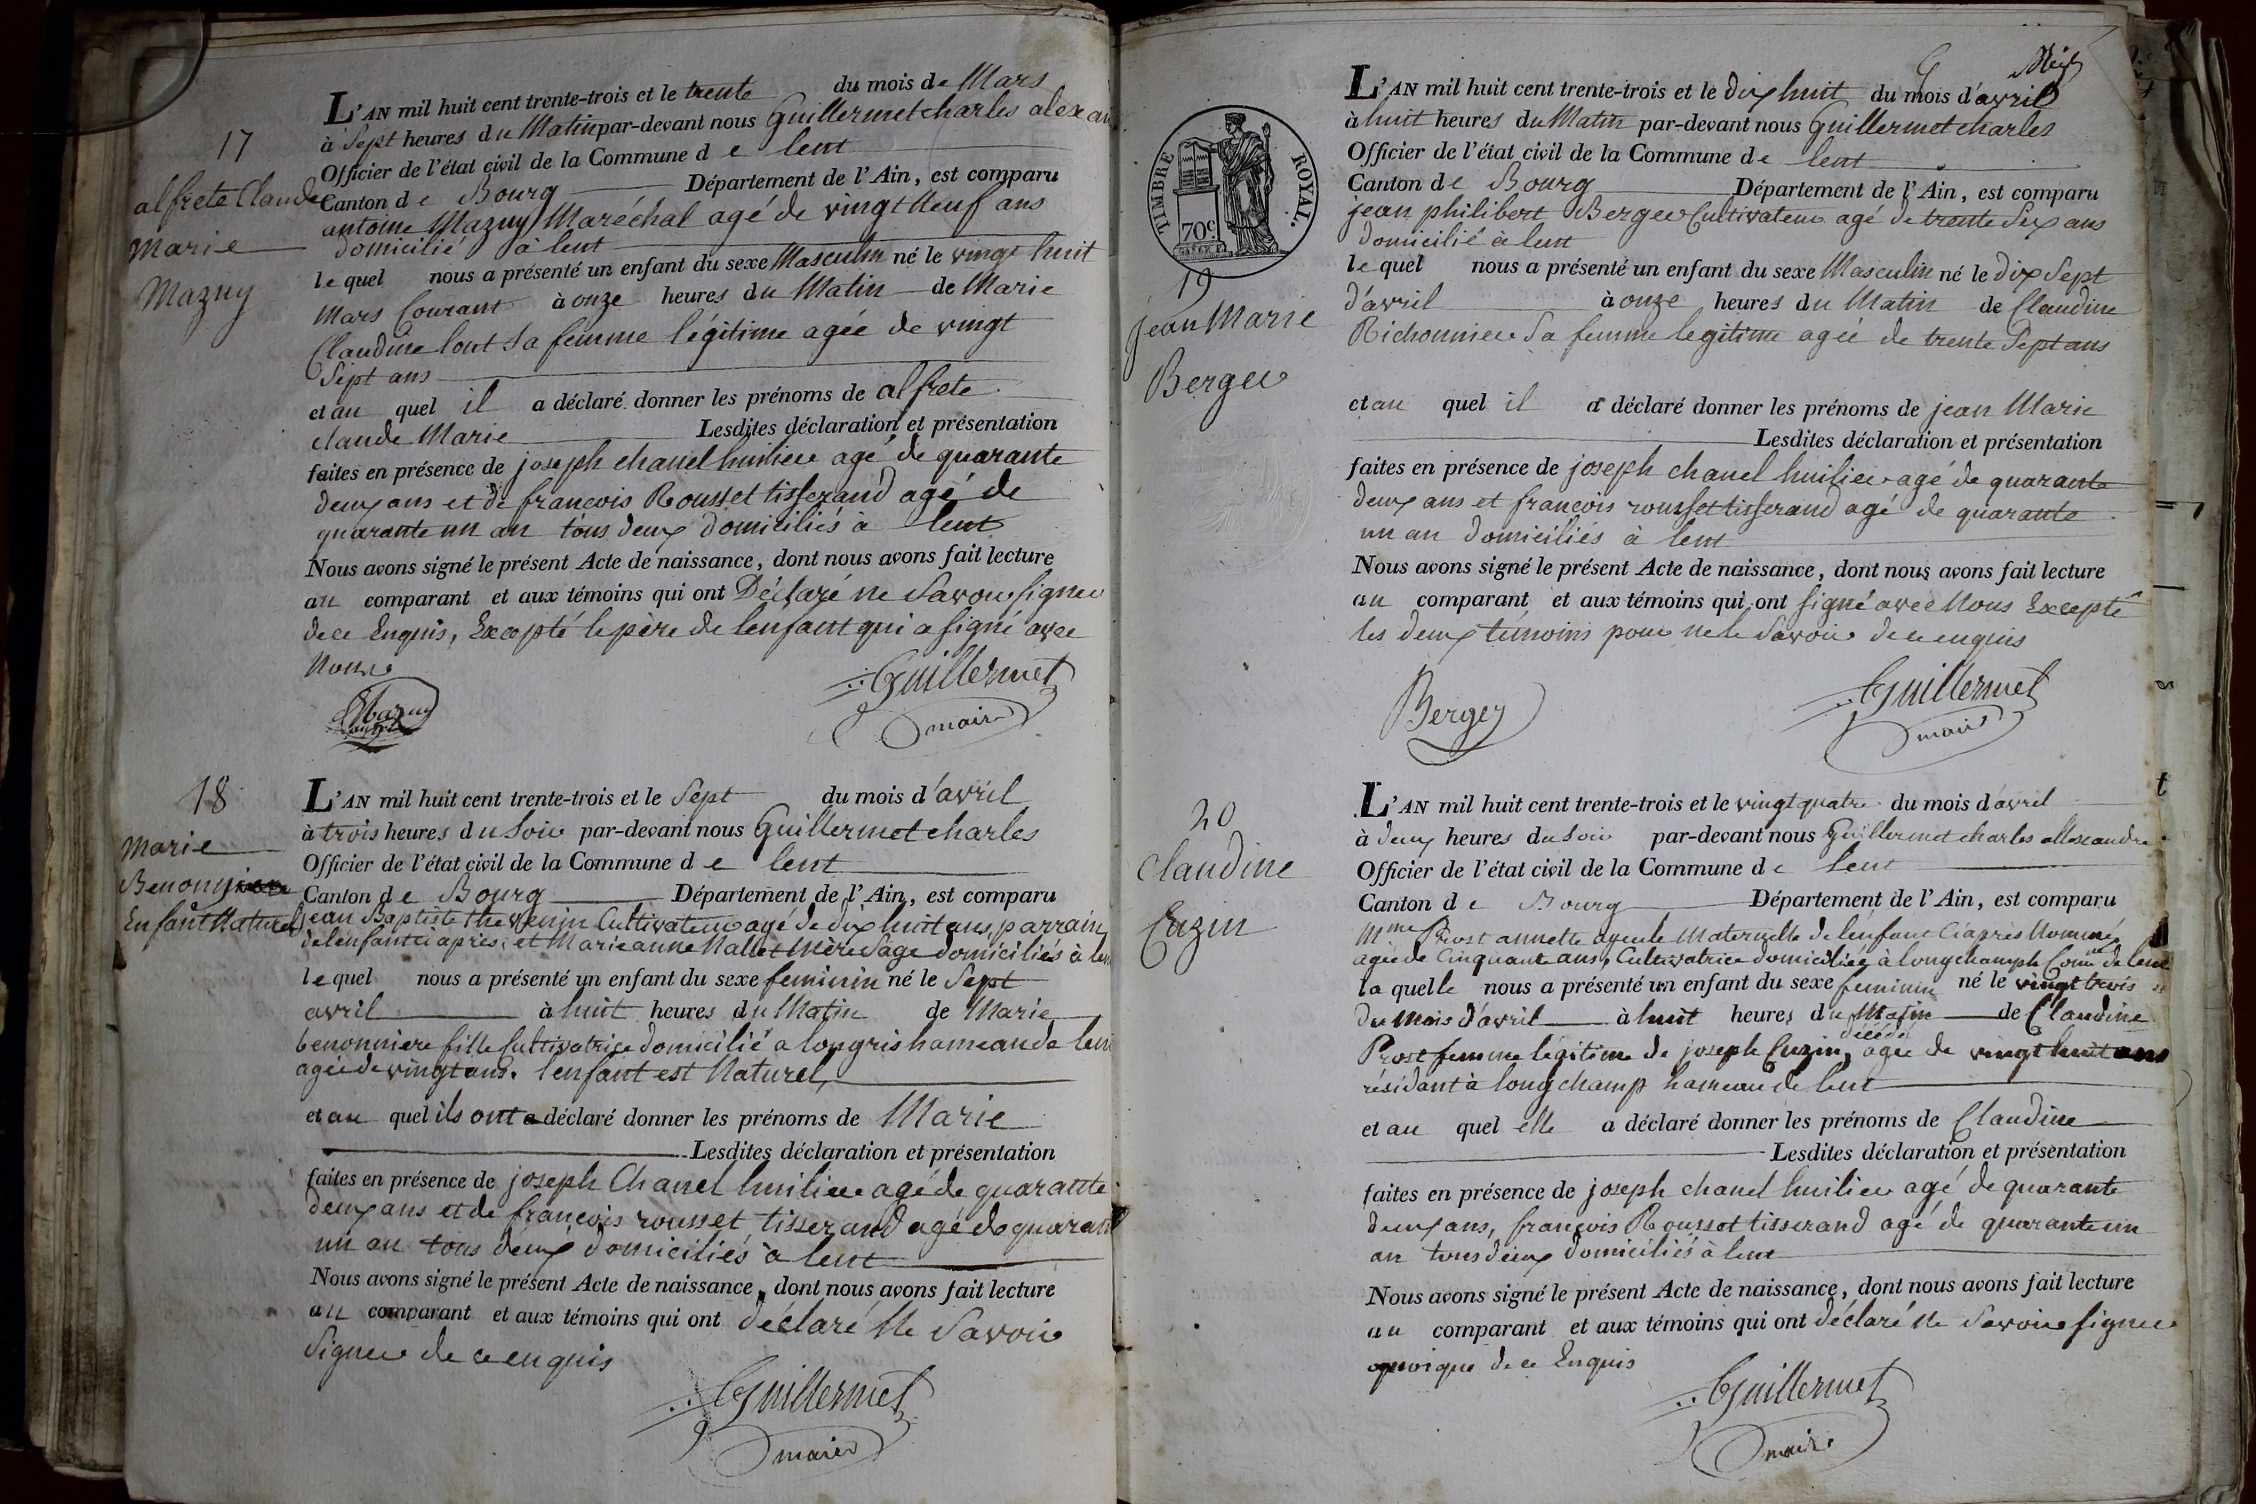 17
alfrete Claude
Marie
Mazuy
L'AN mil huit cent trente-trois et le trente du mois de Mars
à Sept heures du Matin par-devant nous Guillermet charles alexan
Officier de l'état civil de la Commune de lent
Canton de Bourg Département de l'Ain, est comparu
antoine Mazuy Maréchal agé de vingt Neuf ans
domicilié à lent
le quel nous a présenté un enfant du sexe Masculin né le vingt huit
Mars Courant à onze heures du Matin de Marie
Claudine lout sa femme légitime agée de vingt
Sept ans
et au quel il a déclaré donner les prénoms de alfrete
claude Marie Lesdites déclaration et présentation
faites en présence de joseph chanel huilier agé de quarante
deux ans et de françois Rousset tisserand agé de
quarante un an tous deux domiciliés à lent
Nous avons signé le présent Acte de naissance, dont nous avons fait lecture
au comparant et aux témoins qui ont Déclaré ne Savoir signer
de ce Enquis, Excepté le père de lenfant qui a signé avec
Nous
Mazuy
Guillermet
maire
18
Marie
Benony
Enfant Naturel
L'AN mil huit cent trente-trois et le Sept du mois d'avril
à trois heures du Soir par-devant nous Guillermet charles
Officier de l'état civil de la Commune de lent
Canton de Bourg Département de l'Ain, est comparu
jean Baptiste thevenin Cultivateur agé de dix huit ans, parrain
de lenfant ci apres, et Marieanne Nallet Mère Sage domiciliés à len
le quel nous a présenté un enfant du sexe feminin né le Sept
avril à huit heures du Matin de Marie
benonniere fille Cultivatrice domicilié a longris hameau de len
agée de vingt ans. l'enfant est Naturel,
et au quel ils ont a déclaré donner les prénoms de Marie
Lesdites déclaration et présentation
faites en présence de joseph Chanel huilier agé de quarante
deux ans et de françois rousset tisserand agé de quarant
un an tous deux domiciliés à lent
Nous avons signé le présent Acte de naissance, dont nous avons fait lecture
au comparant et aux témoins qui ont déclaré Ne Savoir
Signer de ce enquis
Guillermet
maire
TIMBRE ROYAL.
70c
19
jean Marie
Berger
L'AN mil huit cent trente-trois et le dix huit du mois d'avril
à huit heures du Matin par-devant nous Guillermet charles
Officier de l'état civil de la Commune de lent
Canton de Bourg Département de l'Ain, est comparu
jean philibert Berger Cultivateur agé de trente six ans
domicilié à lent
le quel nous a présenté un enfant du sexe Masculin né le Dix Sept
d'avril à onze heures du Matin de Claudine
Richonnier Sa femme legitime agée de trente Sept ans
et au quel il a déclaré donner les prénoms de jean Marie
Lesdites déclaration et présentation
faites en présence de joseph chanel huilier agé de quarante
deux ans et françois rousset tisserand agé de quarante
un an domiciliés à lent
Nous avons signé le présent Acte de naissance, dont nous avons fait lecture
au comparant et aux témoins qui ont signé avec Nous Excepté
les deux témoins pour ne le Savoir de ce enquis
Berger
Guillermet
maire
20
Claudine
Cuzin
L'AN mil huit cent trente-trois et le vingt quatre du mois d'avril
à deux heures du Soir par-devant nous Guillermet charles allexandre
Officier de l'état civil de la Commune de lent
Canton de Bourg Département de l'Ain, est comparu
Mme Prost annette ayeule Maternelle de lénfant Ciapres Nommé,
agée de Cinquante ans, Cultivatrice domiciliée à longchamph Comne de lent
la quelle nous a présenté un enfant du sexe feminin né le vingt trois
du Mois d'avril à huit heures du Matin de Claudine
Prost femme légitime de joseph Cuzin, décédé agée de vingt huit ans
résidant à longchamp hameau de lent
et au quel elle a déclaré donner les prénoms de Claudine
Lesdites déclaration et présentation
faites en présence de joseph chanel huilier agé de quarante
deux ans, françois Rousset tisserand agé de quarante un
an tous deux domiciliés à lent
Nous avons signé le présent Acte de naissance, dont nous avons fait lecture
au comparant et aux témoins qui ont déclaré Ne Savoir signer
quoique de ce Enquis
Guillermet
maire